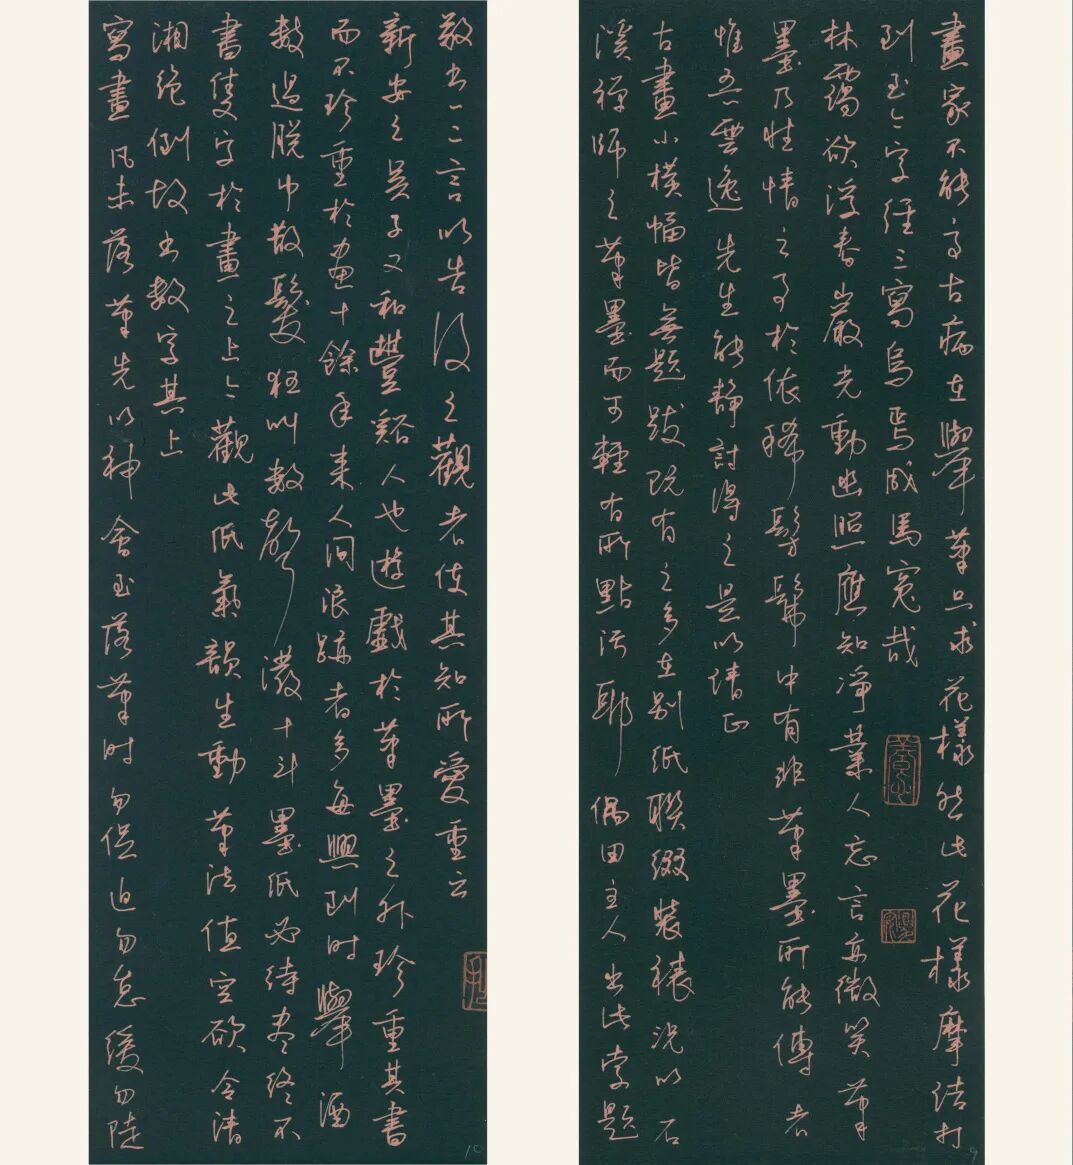 畫家不能高古病在舉筆只求花樣然此花樣摩詰打
到至今字經三寫烏焉成馬冤哉
林靄欲浮春巖光動幽照應知凈業人忘言亦微笑筆
墨乃性情之事於依稀髣髴中有非筆墨所能傳者
惟吾雲逸先生能靜討得之是以請正
古畫小橫幅皆無題跋既有之多在別紙聯綴裝裱況以石
溪禪師之筆墨而可輕有所點污耶偶田主人出此索題
敬書一二言以告後之觀者使其知所愛重云
新安之吳子又和豐谿人也遊戲於筆墨之外珍重其書
而不珍重於畫十餘年來人間浪跡者多每興到時舉酒
數過脫巾散髮狂叫數聲潑十斗墨紙必待盡終不
書隻字於畫之上今觀此紙氣韻生動筆法值空欲令清
湘絕倒故書數字其上
寫畫凡未落筆先以神會至落筆時勿促迫勿怠緩勿陡
9
10